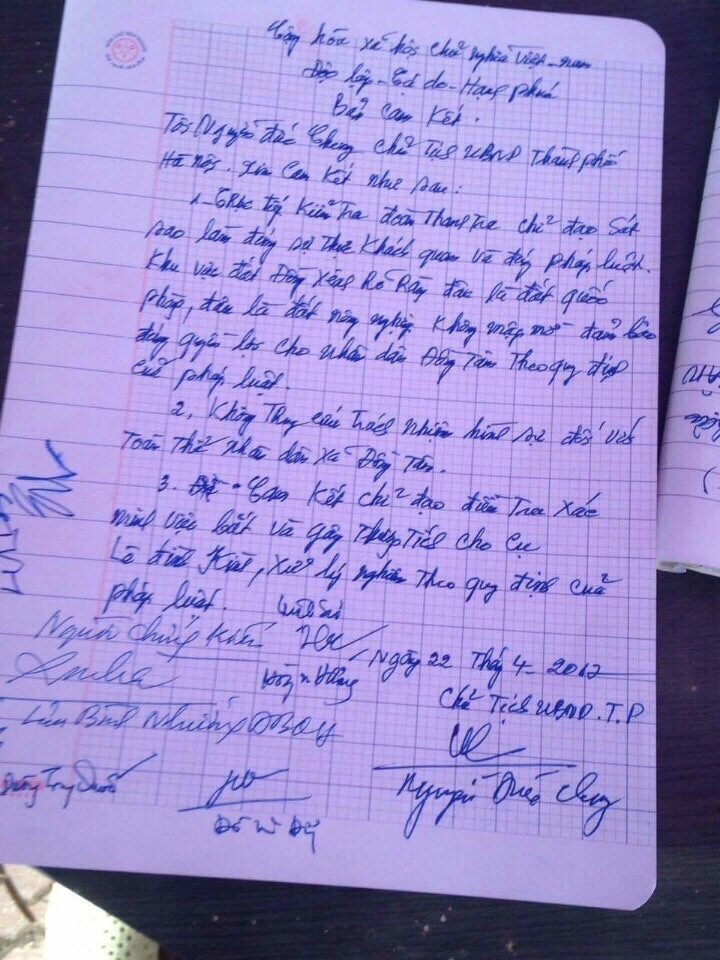 Cộng hòa xã hội chủ nghĩa Việt-nam
Độc lập - Tự do - Hạnh phúc
Bản Cam Kết.
Tôi Nguyễn Đức Chung chủ Tịch UBND Thành phố
Hà Nội. Xin Cam Kết như sau:
1- Trực tiếp Kiểm Tra đoàn Thanh Tra chỉ đạo Sát
sao làm đúng sự Thực Khách quan và đúng pháp luật.
Khu vực đất Đồng Xênh Rõ Ràng đâu là đất quốc
phòng, đâu là đất nông nghiệp. Không mập mờ đảm bảo
đúng quyền lợi cho nhân dân Đồng Tâm Theo quy định
của pháp luật.
2, Không Truy cứu Trách Nhiệm hình sự đối với
Toàn Thể Nhân dân xã Đồng Tâm.
3. Cam Kết chỉ đạo điều Tra Xác
minh Việc bắt và gây Thương Tích cho Cụ
Lê Đình Kình, Xử lý nghiêm Theo quy định của
pháp luật.
Người Chứng Kiến
Ngày 22 Tháng 4- 2017
Chủ Tịch UBND.T.P
Lưu Bình Nhưỡng ĐBQH
Nguyễn Đức Chung
Dương Trung Quốc